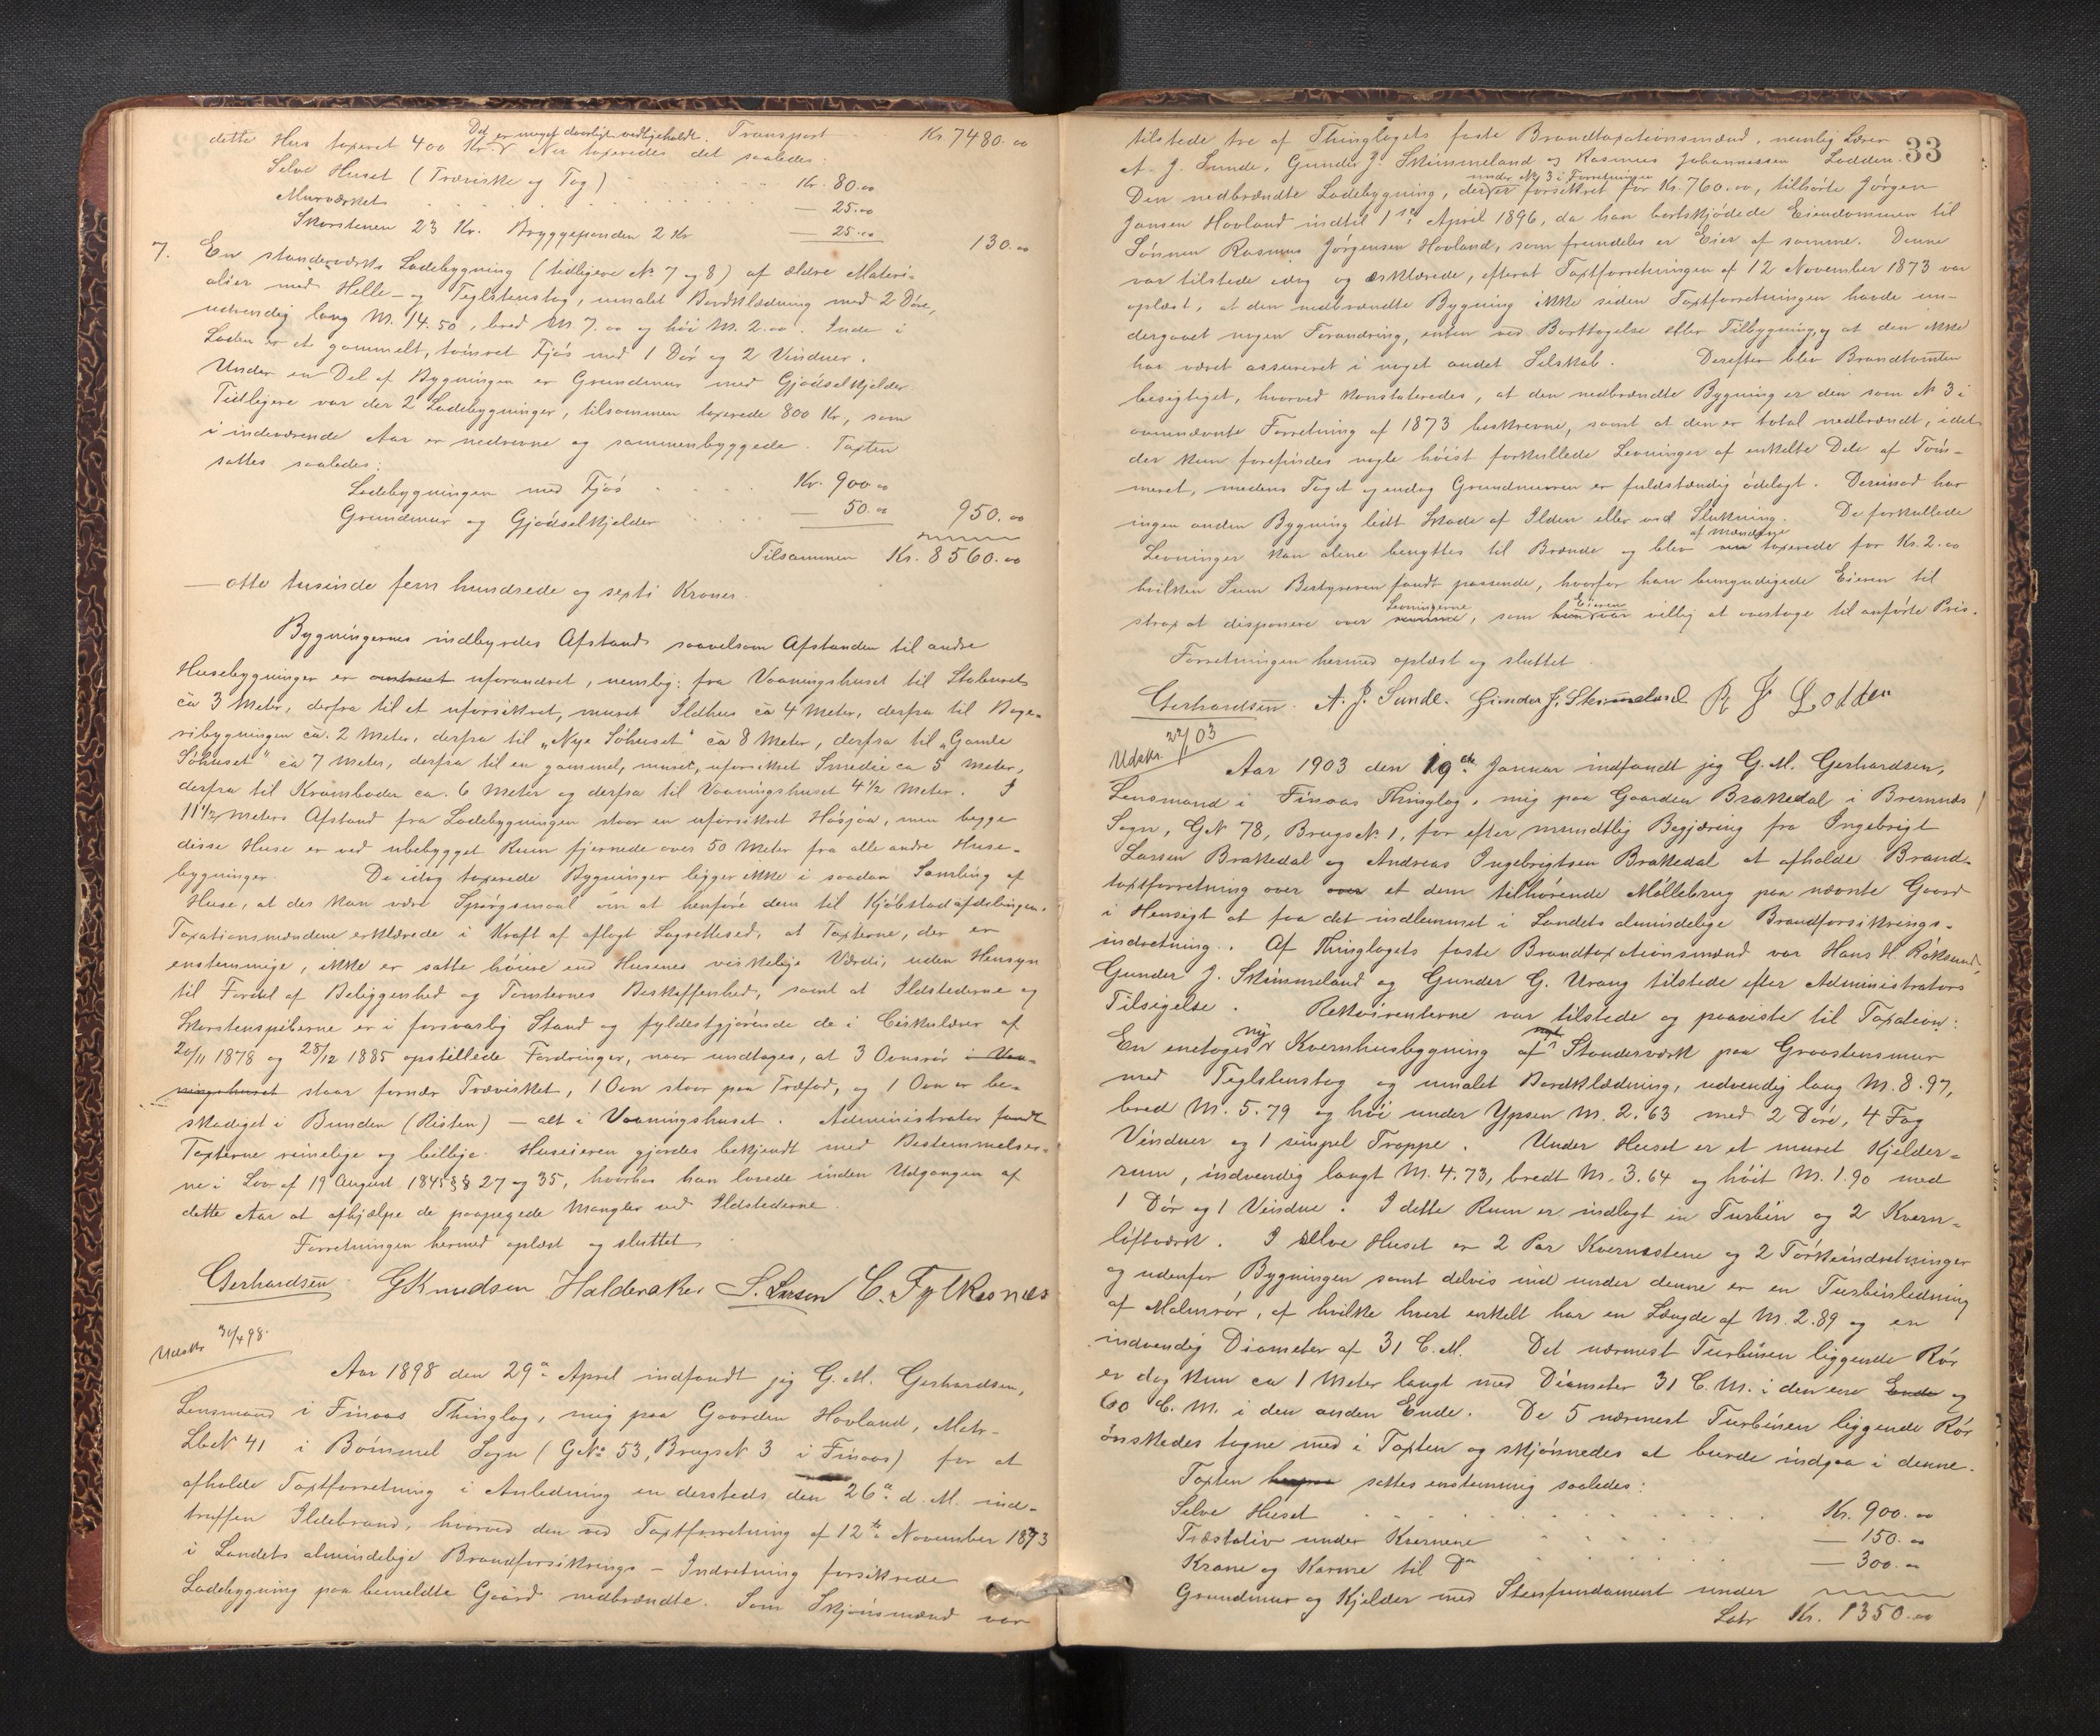 Det er meget daarligt vedligeholdt. Transport Kr. 7480.00
dette Hus taxeret 400 Kr. Nu taxeredes det saaledes:
Selve Huset (Træriske og Tag) Kr. 80.00
Murværket — 25.00
Skorstenen 23 Kr. Bryggepanden 2 Kr — 25.00 130.00
7. En standerværks Ladebygning (tidligere № 7 og 8) af ældre Materi-
alier med Helle- og Teglstenstag, umalet Bordklædning med 2 Døre,
udvendig lang M. 14.50, bred M. 7.00 og høi M. 2.00. Inde i
Laden er et gammelt, tømret Fjøs med 1 Dør og 2 Vinduer.
Under en Del af Bygningen er Grundmur med Gjødselkjelder.
Tidligere var der 2 Ladebygninger, tilsammen taxerede 800 Kr, som
i indeværende Aar er nedrevne og sammenbyggede. Taxten
sattes saaledes:
Ladebygningen med Fjøs Kr. 900.00
Grundmur og Gjødselkjelder — 50.00 950.00
Tilsammen Kr. 8560.00
— otte tusinde fem hundrede og sexti Kroner.
Bygningernes indbyrdes Afstand saavelsom Afstanden til andre
Husebygninger er omtrent uforandret, nemlig: fra Vaaningshuset til Staburet
ca 3 Meter, derfra til et uforsikret, muret Ildhus ca 4 Meter, derfra til Bage-
ribygningen ca. 2 Meter, derfra til „Nye Søhuset" ca 8 Meter, derfra til „Gamle
Søhuset" ca 7 Meter, derfra til en gammel, muret, uforsikret Smedie ca 5 Meter,
derfra til Kramboden ca. 6 Meter og derfra til Vaaningshuset 4½ Meter. I
11½ Meters Afstand fra Ladebygningen staar en uforsikret Høsjaa, men begge
disse Huse er ved ubebygget Rum fjernede over 50 Meter fra alle andre Huse-
bygninger. De idag taxerede Bygninger ligger ikke i saadan Samling af
Huse, at der kan være Spørgsmaal om at henføre dem til Kjøbstadafdelingen.
Taxationsmændene erklærede i Kraft af aflagt Lagrettesed, at Taxterne, der er
enstemmige, ikke er satte høiere end Husenes virkelige Værdi, uden Hensyn
til Fordel af Beliggenhed og Tomternes Beskaffenhed, samt at Ildstederne og
Skorstenspiberne er i forsvarlig Stand og fyldestgjørende de i Cirkulærer af
20/11 1878 og 28/12 1885 opstillede Fordringer, naar undtages, at 3 Ovnsrør i Vaa-
ningshuset staar fornær Trævirket, 1 Ovn staar paa Træfod, og 1 Ovn er be-
skadiget i Bunden (Risten) — alt i Vaaningshuset. Administrator fandt
Taxterne rimelige og billige. Huseieren gjordes bekjendt med Bestemmelser-
ne i Lov af 19 August 1845 §§ 27 og 35, hvorhos han lovede inden Udgangen af
dette Aar at afhjælpe de paapegede Mangler ved Ildstederne.
Forretningen hermed oplæst og sluttet.
Gerhardsen. GKnudsen Halderaker S. Larsen C. Fylkesnes
Udskr. 30/4 98.
Aar 1898 den 29de April indfandt jeg G. M. Gerhardsen,
Lensmand i Finaas Thinglag, mig paa Gaarden Hovland, Matr-
Lb № 41 i Bømmel Sogn (G№ 53, Brugs № 3 i Finaas) for at
afholde Taxtforretning i Anledning en dersteds den 26de d. M. ind-
truffen Ildebrand, hvorved den ved Taxtforretning af 12te November 1873
i Landets almindelige Brandforsikrings-Indretning forsikrede
Ladebygning paa bemeldte Gaard nedbrændte. Som Skjønsmænd var
33
tilstede tre af Thinglagets faste Brandtaxationsmænd, nemlig Lærer
A. J. Sunde, Gunder J. Skimmeland og Rasmus Johannessen Lodden.
under № 3 i Forretningen
Den nedbrændte Ladebygning, der er forsikret for Kr. 760.00, tilhørte Jørgen
Jansen Hovland indtil 1ste April 1896, da han bortskjødede Eiendommen til
Sønnen Rasmus Jørgensen Hovland, som fremdeles er Eier af samme. Denne
var tilstede idag og erklærede, efterat Taxtforretningen af 12 November 1873 var
oplæst, at den nedbrændte Bygning ikke siden Taxtforretningen havde un-
dergaaet nogen Forandring, enten ved Borttagelse eller Tilbygning, og at den ikke
har været assureret i noget andet Selskab. Derefter blev Brandtomten
besigtiget, hvorved konstateredes, at den nedbrændte Bygning er den som № 3 i
ovennævnte Forretning af 1873 beskrevne, samt at den er total nedbrændt, idet
der kun forefindes nogle høist forkullede Levninger af enkelte Dele af Tøm-
meret, medens Taget og endog Grundmuren er fuldstændig ødelagt. Derimod har
ingen anden Bygning lidt Skade af Ilden eller ved Slukning. De forkullede
af Mændene
Levninger kan alene benyttes til Brænde og blev taxerede for Kr. 2.00
hvilken Sum Bestyreren fandt passende, hvorfor han bemyndigede Eieren til
Levningerne Eieren
strax at disponere over samme, som han var villig at overtage til anførte Pris.
Forretningen hermed oplæst og sluttet.
Gerhardsen. A. J. Sunde. Gunder J. Skimmeland R J Lodden
Udskr. 22/1 03
Aar 1903 den 19de Januar indfandt jeg G. M. Gerhardsen,
Lensmand i Finaas Thinglag, mig paa Gaarden Brakedal i Bremnes
Sogn, G№ 78, Brugs№ 1, for efter mundtlig Begjæring fra Ingebrigt
Larsen Brakedal og Andreas Ingebrigtsen Brakedal at afholde Brand-
taxtforretning over over et dem tilhørende Møllebrug paa nævnte Gaard
i Hensigt at faa det indlemmet i Landets almindelige Brandforsikrings-
indretning. Af Thinglagets faste Brandtaxationsmænd var Hans H. Røksund,
Gunder J. Skimmeland og Gunder G. Urang tilstede efter Administrators
Tilsigelse. Rekvirenterne var tilstede og paaviste til Taxation:
ny nyt
En enetages Kvernhusbygning af Standerværk paa Graastensmur
med Teglstenstag og umalet Bordklædning, udvendig lang M. 8.97,
bred M. 5.79 og høi under Ypsen M. 2.63 med 2 Døre, 4 Fag
Vinduer og 1 simpel Trappe. Under Huset er et muret Kjelder-
rum, indvendig langt M. 4.73, bredt M. 3.64 og høit M. 1.90 med
1 Dør og 1 Vindue. I dette Rum er indlagt en Turbin og 2 Kvern-
løftværk. I selve Huset er 2 Par Kvernstene og 2 Tørkeindretninger
og udenfor Bygningen samt delvis ind under denne er en Turbinledning
af Malmrør, af hvilke hvert enkelt har en Længde af M. 2.89 og en
indvendig Diameter af 31 C.M. Det nærmest Turbinen liggende Rør
er dog kun ca 1 Meter langt med Diameter 31 C.M. i den ene Ende og
60 C.M. i den anden Ende. De 5 nærmest Turbinen liggende Rør
ønskedes tagne med i Taxten og skjønnedes at burde indgaa i denne.
Taxten sattes enstemmig saaledes:
Selve Huset Kr. 900.00
Træstativ under Kvernene — 150.00
Krane og Karme til Do — 300.00
Grundmur og Kjelder med Stenfundament under
Latr Kr. 1350.00